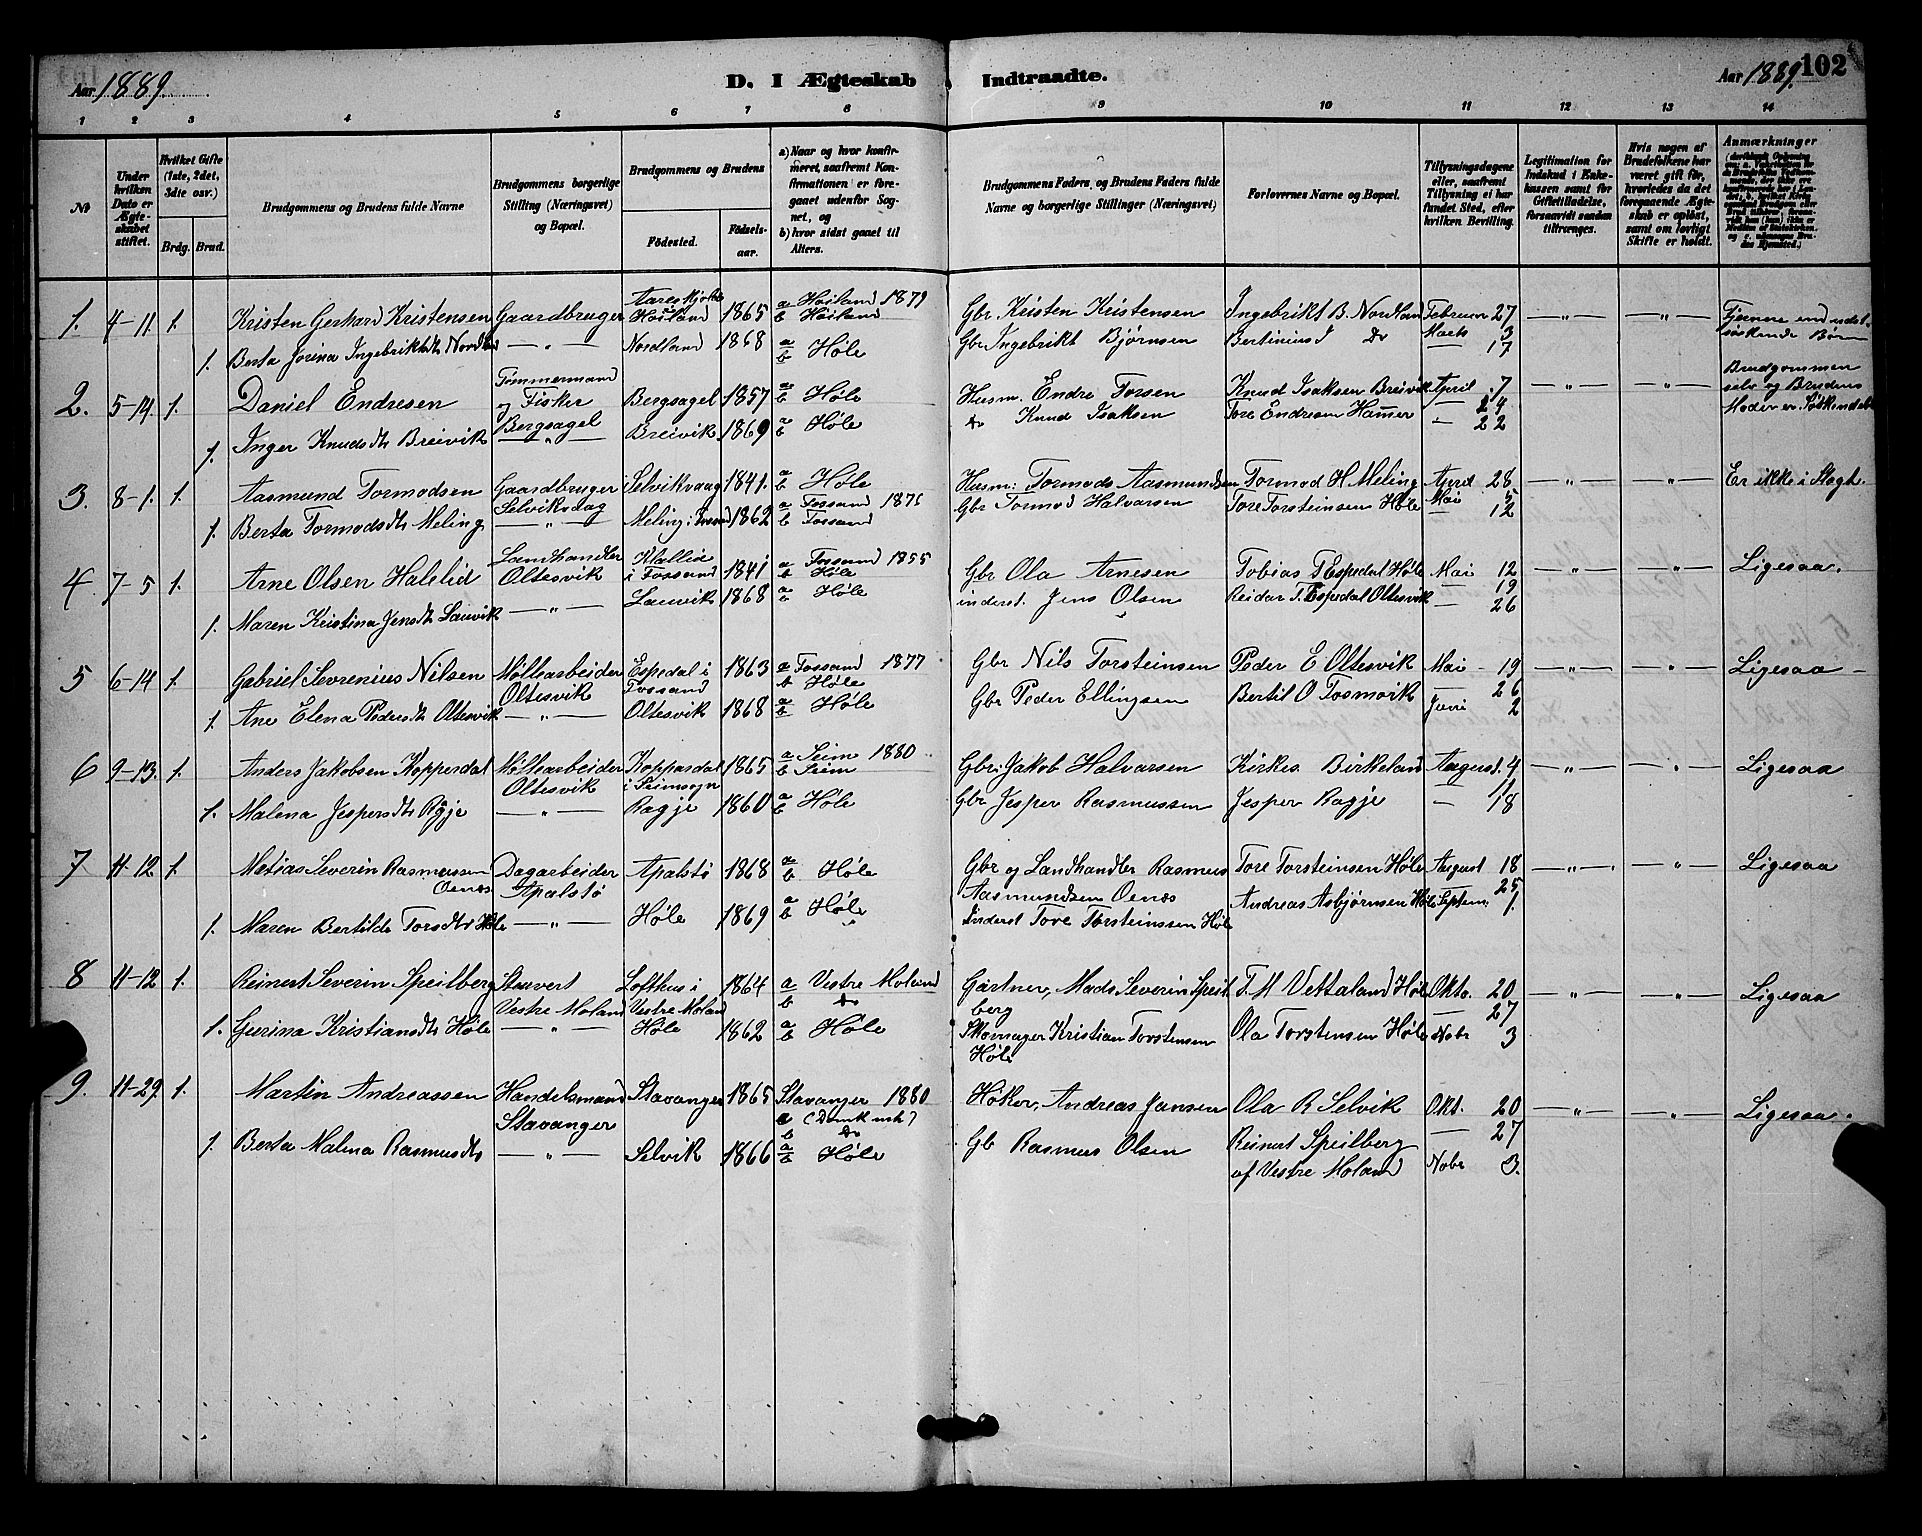 Aar 1889.
D. I Ægteskab Indtraadte.
Aar 1889.
102
1 2 3 4 5 6 7 8 9 10 11 12 13 14
№
Under hvilken Dato er Ægteskabet stiftet.
Hvilket Gifte (1ste, 2det, 3die osv.)
Brdg. Brud.
Brudgommens og Brudens fulde Navne
Brudgommens borgerlige Stilling (Næringsvei) og Bopæl.
Brudgommens og Brudens
Födested.
Födselsaar.
a) Naar og hvor konfirmeret, saafremt Konfirmationen er foregaaet udenfor Sognet, og
b) hvor sidst gaaet til Alters.
Brudgommens Faders, og Brudens Faders fulde Navne og borgerlige Stillinger (Næringsvei)
Forlovernes Navne og Bopæl.
Tillysningsdagene eller, saafremt Tillysning ei har fundet Sted, efter hvilken Bevilling.
Legitimation for Indskud i Enkekassen samt for Giftetilladelse, forsaavidt saadan tiltrænges.
Hvis nogen af Brudefolkene har været gift før, hvorledes da det foregaaende Ægteskab er opløst, samt om lovligt Skifte er holdt.
Anmærkninger
1. 4-11 1. Kristen Gerhard Kristensen Gaardbruger Høiland 1865 a Høiland 1879 b Høiland Gbr Kristen Kristensen Ingebrikt B. Nordland Februar 27 — " — — " — Fjernere end
1. Berta Jorina Ingebriktdtr Nordland — " — Nordland 1868 a b Høle Gbr Ingebrikt Bjørnsen Bertinius J do Marts 3 søskende Børn
— 17
2. 5-14 1. Daniel Endresen Tømmermand og Fisker Bergsagel Bergsagel 1857 a b Høle Husm. Endre Torsen Knud Isaksen Breivik April 7 — " — — " — Brudgommen selv og Brudens Moder er Søskendeb
1. Inger Knudsdtr Breivik — " — Breivik 1869 a b Høle do Knud Isaksen Tore Endresen Hammer
— 22
3. 8-1. 1. Aasmund Tormodsen Gaardbruger Selvikvaag Selvikvaag 1841. a b Høle Husm: Tormods Aasmundsen Tormod H Meling April 28 — " — — " — Er ikke i Slegt.
1. Berta Tormodsdtr Meling — " — Meling i Fossand 1862 a Fossand 1876 b Fossand Gbr Tormod Halvarsen Tore Torsteinsen Høle Mai 5
— 12
4. 7-5 1. Arne Olsen Halelid Landhandler Oltesvik i Fossand 1841 a Fossand 1855 b Høle Gbr Ola Arnesen Tobias T Espedal Høle Mai 12 — " — — " — Ligesaa.
1. Maren Kristina Jensdtr Lauvik — " — Lauvik 1868 a b Høle inderst. Jens Olsen Reidar T. Espedal Oltesvik — 19
— 26
5 6-14 1. Gabriel Sevrenius Nilsen Møllearbeider Oltesvik Espedal i Fossand 1863 a Fossand 1877 b Høle Gbr Nils Torsteinsen Peder E Oltesvik Mai 19 — " — — " — Ligesaa
1. Ane Elena Pedersdtr Oltesvik — " — Oltesvik 1868 a b Høle Gbr Peder Ellingsen Bertil O Fosmovik — 26
Juni 2
6 9-13. 1. Anders Jakobsen Kopperdal Møllearbeider Oltesvik Kopperdal 1865 a Seim 1880 b Seim Gbr. Jakob Halvarsen Kirkes. Birkeland August 4 — " — " Ligesaa
1. Malena Jespersdtr Ragje — " — Ragje 1860 a b Høle Gbr Jesper Rasmussen Jesper Ragje 11
— 18
7 11-12 1. Matias Severin Rasmussen Oenæs Dagarbeider Apalstø Apalstø 1868 a b Høle Gbr og Landhandler Rasmus Aasmundsen Oenæs Tore Torsteinsen Høle August 18 — " — " Ligesaa
25
1. Maren Bertilde Torsdtr Høle — " — Høle 1869 a b Høle Inderst Tore Torsteinssen Høle Andreas Asbjørnsen Høle Septem. 1.
8 11-12 1. Reinert Severin Speilberg Stuvert Vestre Moland Lofthus i Vestre Moland 1864 a Vestre Moland b do Gartner, Mads Severin Speilberg T. M Vettaland Høle Okto. 20 — " — — " — Ligesaa
— 27
1. Gurina Kristiansdtr Høle — " — Høle 1862 a b Høle Skomager Kristian Torstensen Høle Ola Torstensen Høle Nobr 3
9. 11-29 1. Martin Andreassen Handelsmand Stavanger Stavanger 1865 Stavanger 1880 a (Domk) b do Høker, Andreas Jansen Ola R Selvik Okt. 20 — " — " Ligesaa.
— 27
1. Berta Malena Rasmusdtr — " — Selvik 1866 a b Høle Gb Rasmus Olsen Reinert Speilberg af Vestre Moland Nobr 3.